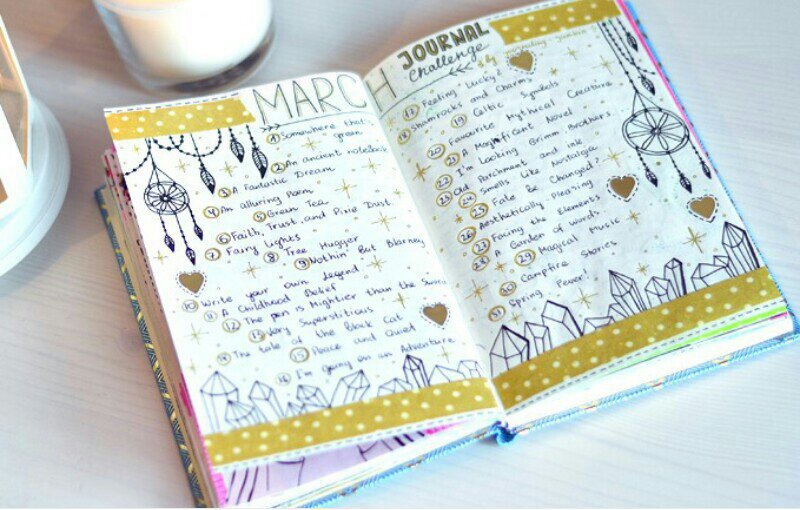 MARCH
1 Somewhere that's
green
2 An ancient notebook
3 A Fantastic Dream
4 An alluring Poem
5 Green Tea
6 Faith, Trust and Pixie Dust
7 Fairy Lights 8 Tree Hugger
9 Nothin' But Blarney
10 Write your own Legend
11 A Childhood Belief
12 The pen is Mightier than the Sword
13 Very Superstitious
14 The tale of the Black Cat
15 Peace and Quiet
16 I'm going on an Adventure
JOURNAL
Challenge
by
17 Feeling Lucky?
18 Shamrocks and Charms
19 Celtic Symbols
20 Favourite Mythical Creature
21 A Magnificent Novel
22 I'm Looking Grimm Brothers
23 Old Parchment and ink
24 Smells like Nostalgia
25 Fate & Changed?
26 Aesthetically Pleasing
27 Facing the Elements
28 A Garden of Words
29 Magical Music
30 Campfire Stories
31 Spring Fever!